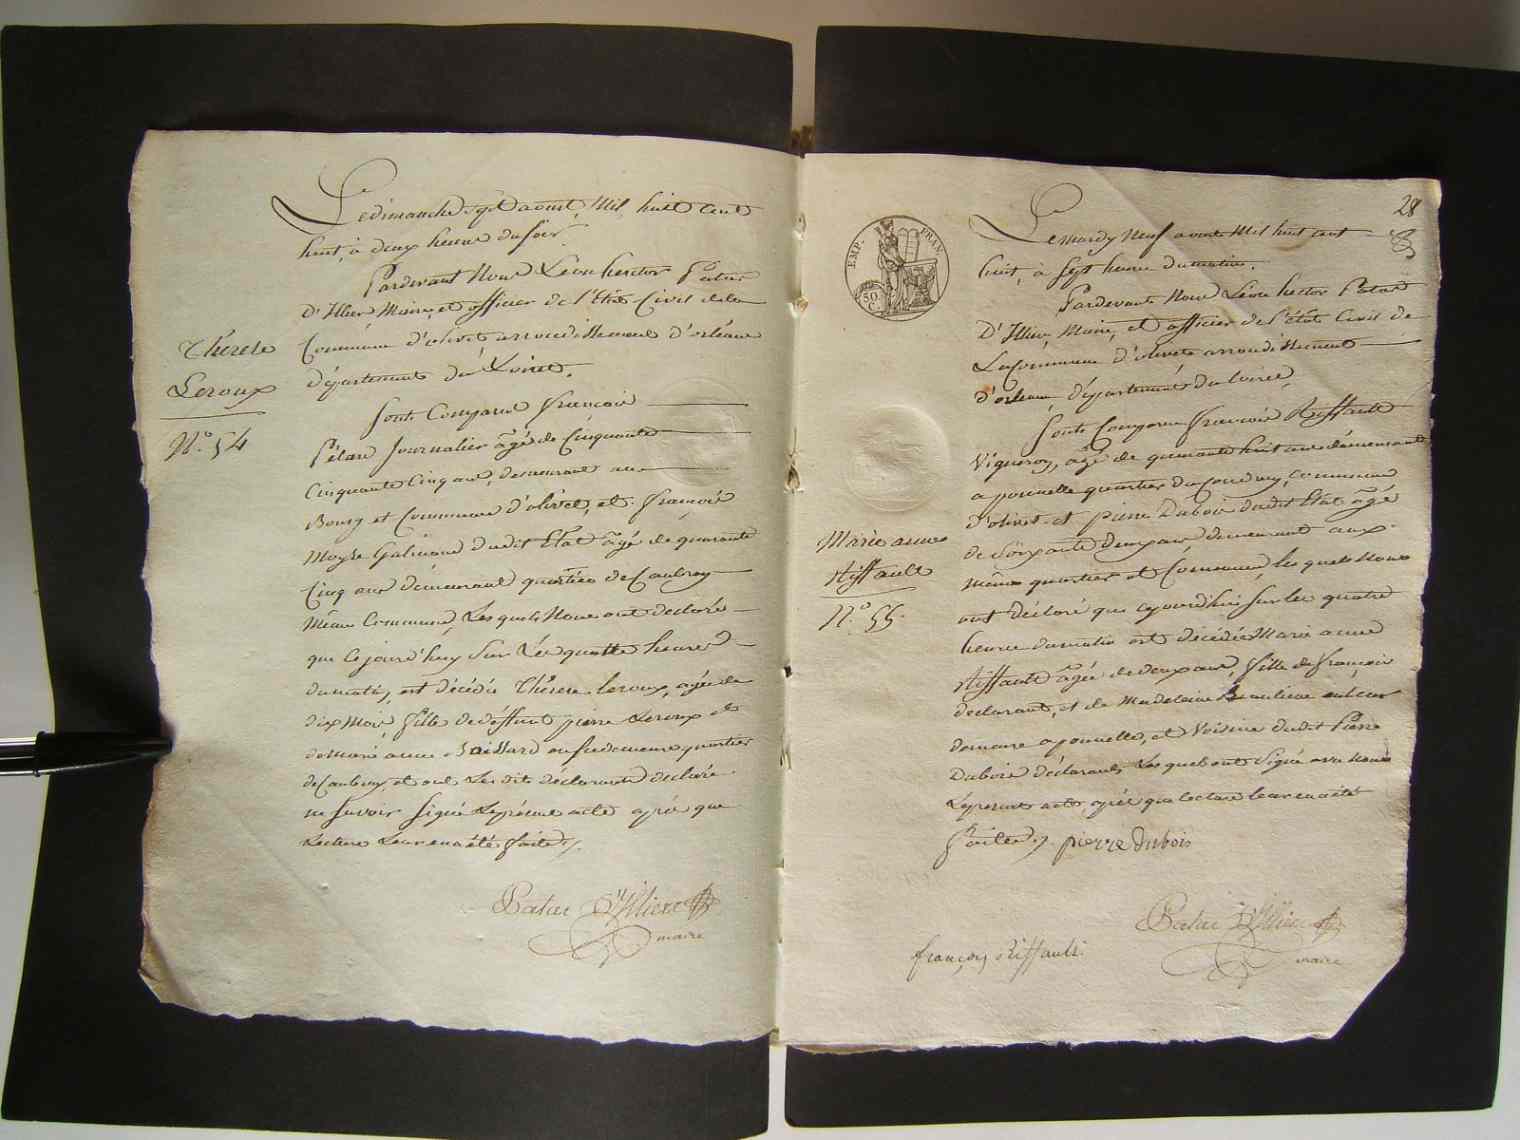 Le dimanche sept aoust, Mil huit cent
huit, à deux heures du soir.
Pardevant Nous Léon hector Patas
D'Illiers Maire, et officier de l'État Civil de la
Commune d'olivet arrondissement d'orléans
département du Loiret.
Therese
Leroux
N.º 54
Sont Comparus françois
journalier âgé de Cinquante
Cinquante Cinq ans, demeurant au
Bourg et Commune d'olivet, et françois
Moyse dudit État âgé de quarante
Cinq ans demeurant quartier de Caubray
même Commune, Les quels Nous ont declaré
que cejourd'huy Sur Les quatre heures
du matin, est décédée Thérese leroux, agée de
dix Mois, fille de déffunt pierre Leroux et
de marie anne demeure quartier
de Caubray, et ont Les dits déclarants declaré
ne Savoir Signé Leprésent acte après que
Lecture Leur en a été faite.
Patas D'Illiers
maire
28
EMP. FRAN.
50 C.
Le mardy Neuf aoust Mil huit cent
huit, à Sept heures du matin.
Pardevant Nous Léon hector Patas
D'Illiers, Maire, et officier de l'état Civil de
La Commune d'olivet arrondissement
d'orleans, département du loiret,
Marie anne
Riffault
N.º 55.
Sont Comparus françois Riffault
Vigneron, âgé de quarante huit ans demeurant
a ponuelle quartier du coudray, commune
d'olivet et pierre Dubois dudit État âgé
de Soixante deux ans demeurant aux
mêmes quartier et Commune, les quels Nous
ont déclaré que cejourd'hui Sur les quatre
heures du matin est décédée Marie anne
Riffault âgée de deux ans, fille de françois
declarant, et de Madeleine en leur
demeure a ponuelle, et Voisine dudit Pierre
Dubois déclarant, Les quels ont Signé avec Nous
Leprésent acte, après que lecture leur en a été
faite. pierre Dubois
Patas D'Illiers
maire
françois Riffault